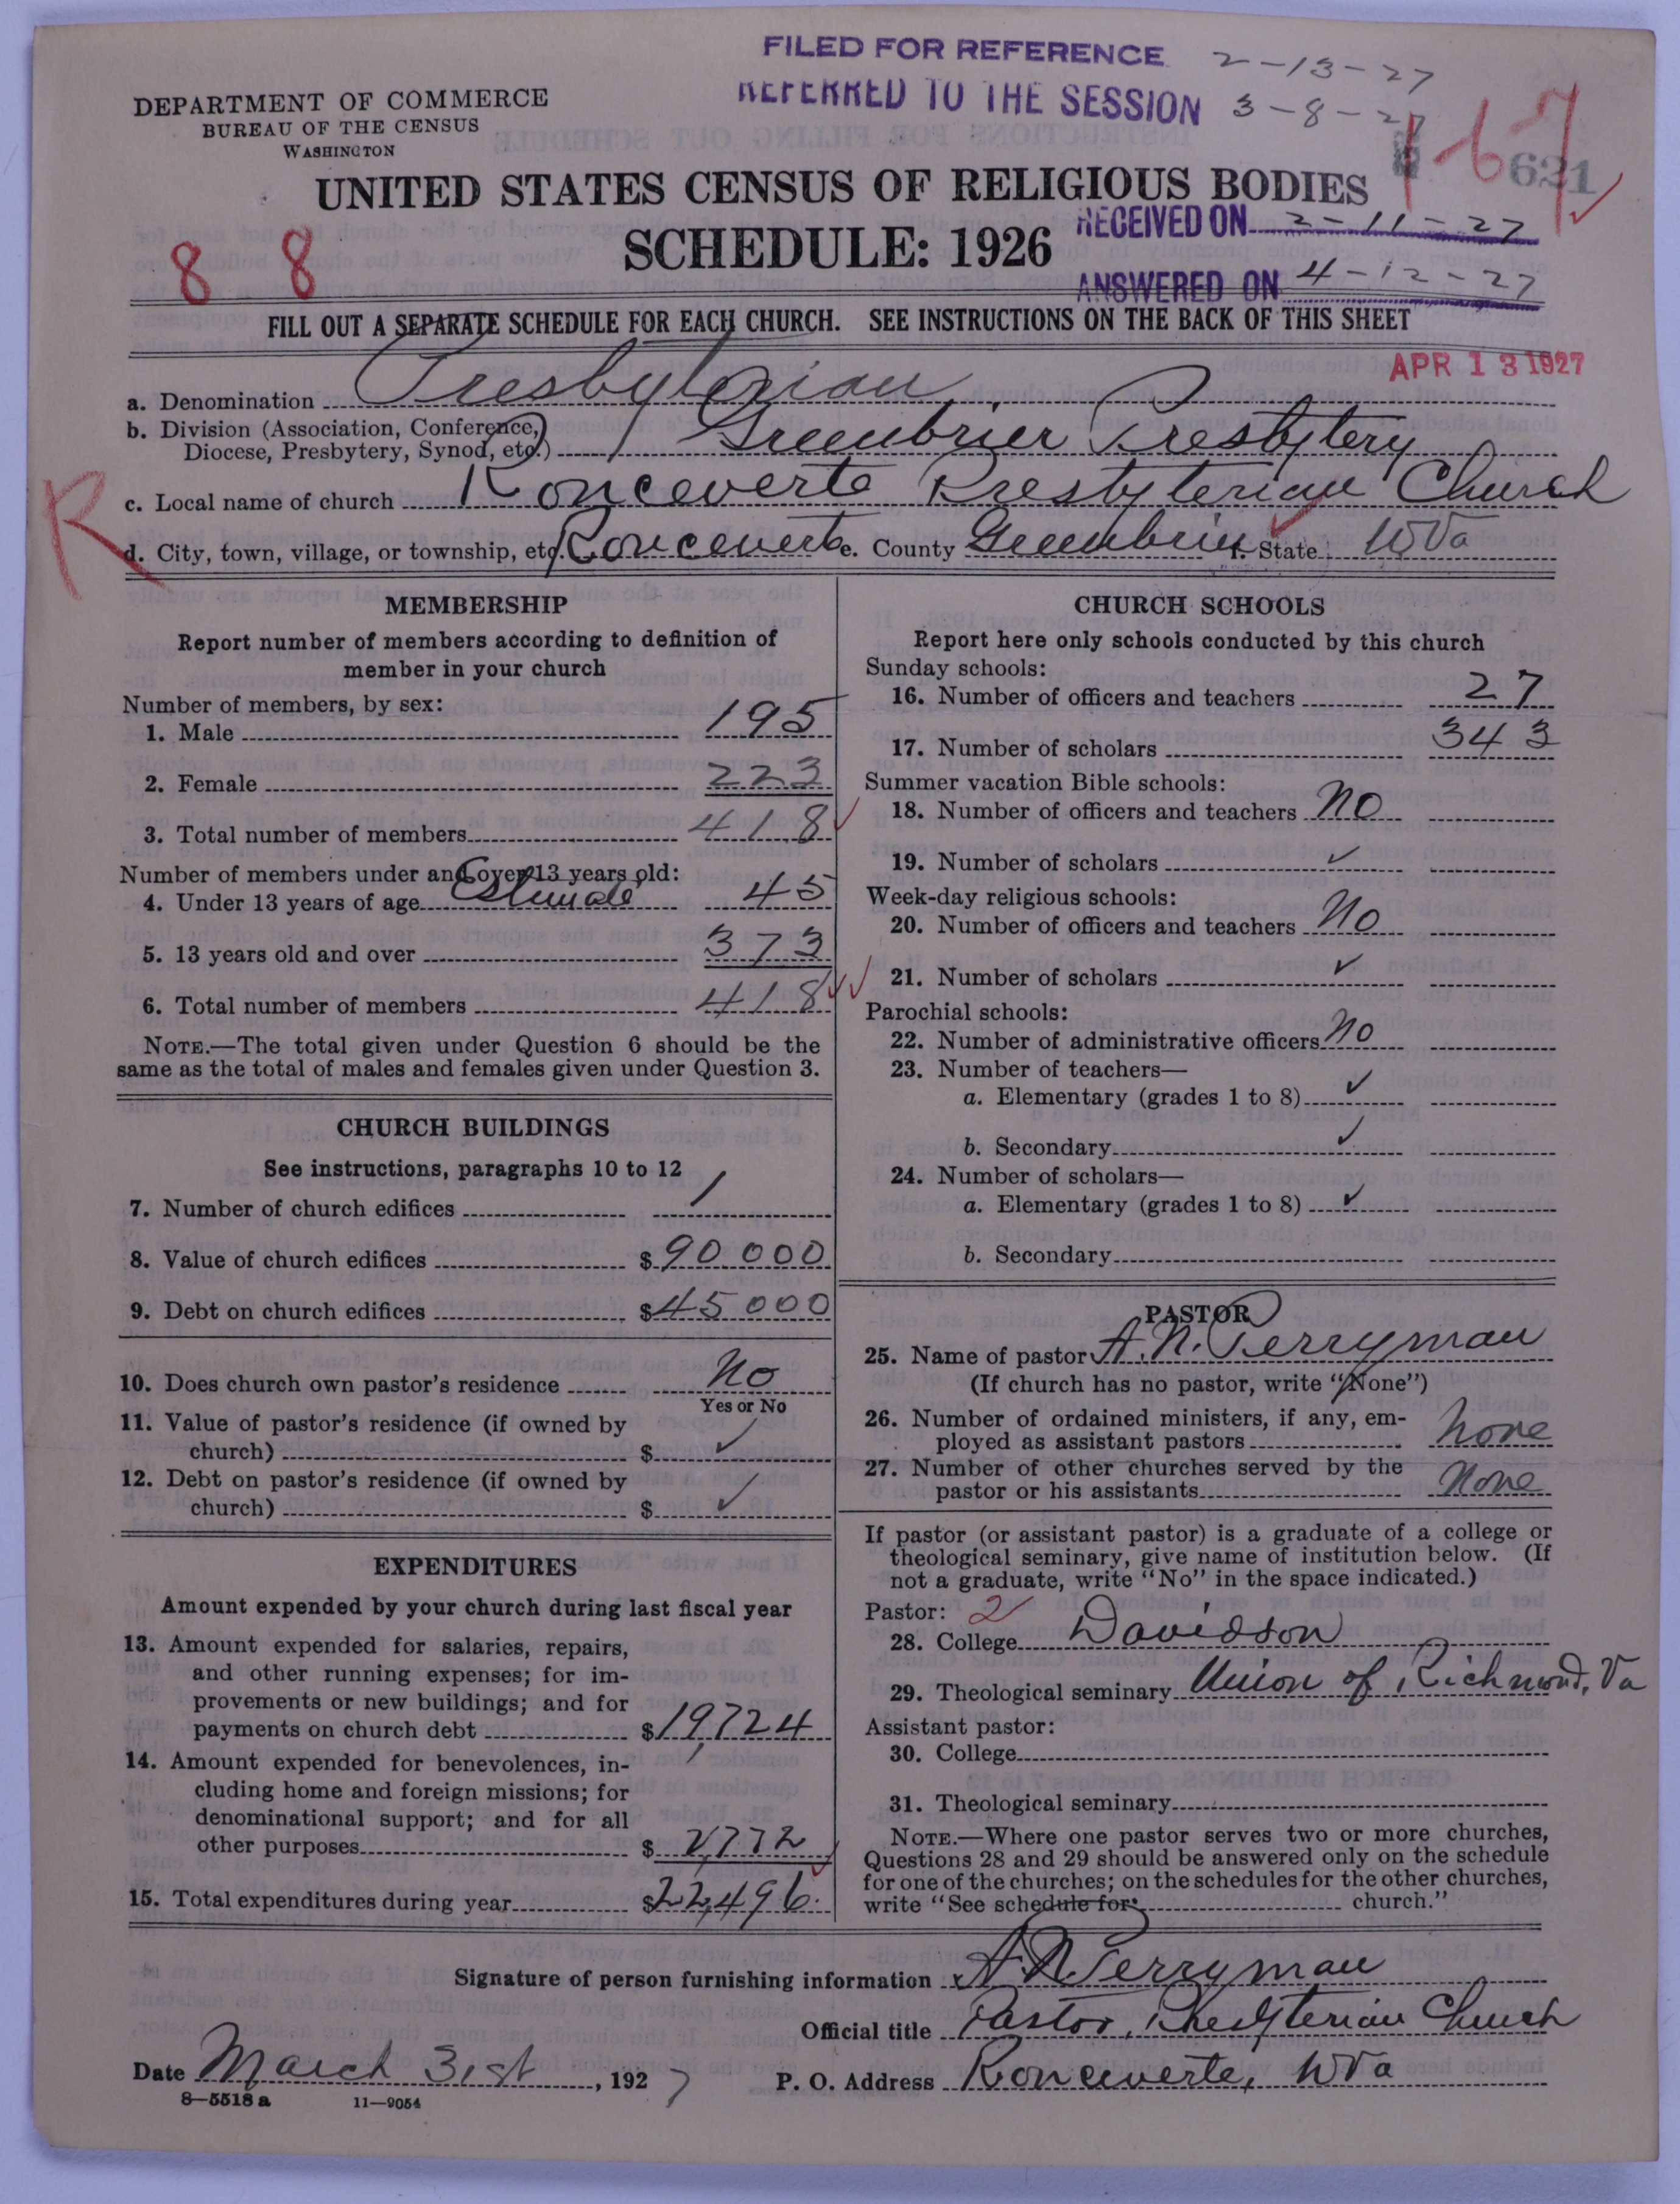 FILED FOR REFERENCE 2-13-27
REFERRED TO THE SESSION 3-8-27
DEPARTMENT OF COMMERCE
BUREAU OF THE CENSUS
WASHINGTON
1-67
621
UNITED STATES CENSUS OF RELIGIOUS BODIES
RECEIVED ON 2-11-27
8 8
SCHEDULE: 1926
ANSWERED ON 4-12-27
FILL OUT A SEPARATE SCHEDULE FOR EACH CHURCH. SEE INSTRUCTIONS ON THE BACK OF THIS SHEET
APR 13 1927
a. Denomination Presbyterian
b. Division (Association, Conference,
Diocese, Presbytery, Synod, etc.) Greenbrier Presbytery
R
c. Local name of church Ronceverte Presbyterian Church
d. City, town, village, or township, etc. Ronceverte e. County Greenbrier f. State WVa
MEMBERSHIP
Report number of members according to definition of
member in your church
Number of members, by sex:
1. Male 195
2. Female 223
3. Total number of members 418
Number of members under and over 13 years old:
4. Under 13 years of age Estimate 45
5. 13 years old and over 373
6. Total number of members 418
NOTE.—The total given under Question 6 should be the
same as the total of males and females given under Question 3.
CHURCH BUILDINGS
See instructions, paragraphs 10 to 12
7. Number of church edifices 1
8. Value of church edifices $ 90000
9. Debt on church edifices $ 45000
10. Does church own pastor's residence No
Yes or No
11. Value of pastor's residence (if owned by
church) $ ✓
12. Debt on pastor's residence (if owned by
church) $ ✓
EXPENDITURES
Amount expended by your church during last fiscal year
13. Amount expended for salaries, repairs,
and other running expenses; for im-
provements or new buildings; and for
payments on church debt $ 19,724
14. Amount expended for benevolences, in-
cluding home and foreign missions; for
denominational support; and for all
other purposes $ 2,772
15. Total expenditures during year $ 22,496.
CHURCH SCHOOLS
Report here only schools conducted by this church
Sunday schools:
16. Number of officers and teachers 27
17. Number of scholars 343
Summer vacation Bible schools:
18. Number of officers and teachers No
19. Number of scholars ✓
Week-day religious schools:
20. Number of officers and teachers No
21. Number of scholars ✓
Parochial schools:
22. Number of administrative officers No
23. Number of teachers—
a. Elementary (grades 1 to 8) ✓
b. Secondary ✓
24. Number of scholars—
a. Elementary (grades 1 to 8) ✓
b. Secondary
PASTOR
25. Name of pastor A. N. Perryman
(If church has no pastor, write "None")
26. Number of ordained ministers, if any, em-
ployed as assistant pastors None
27. Number of other churches served by the
pastor or his assistants None
If pastor (or assistant pastor) is a graduate of a college or
theological seminary, give name of institution below. (If
not a graduate, write "No" in the space indicated.)
Pastor: 2
28. College Davidson
29. Theological seminary Union of Richmond, Va
Assistant pastor:
30. College
31. Theological seminary
NOTE.—Where one pastor serves two or more churches,
Questions 28 and 29 should be answered only on the schedule
for one of the churches; on the schedules for the other churches,
write "See schedule for church."
Signature of person furnishing information x A N Perryman
Official title Pastor, Presbyterian Church
Date March 31st, 1927
P. O. Address Ronceverte, WVa
8—5518 a 11—9054